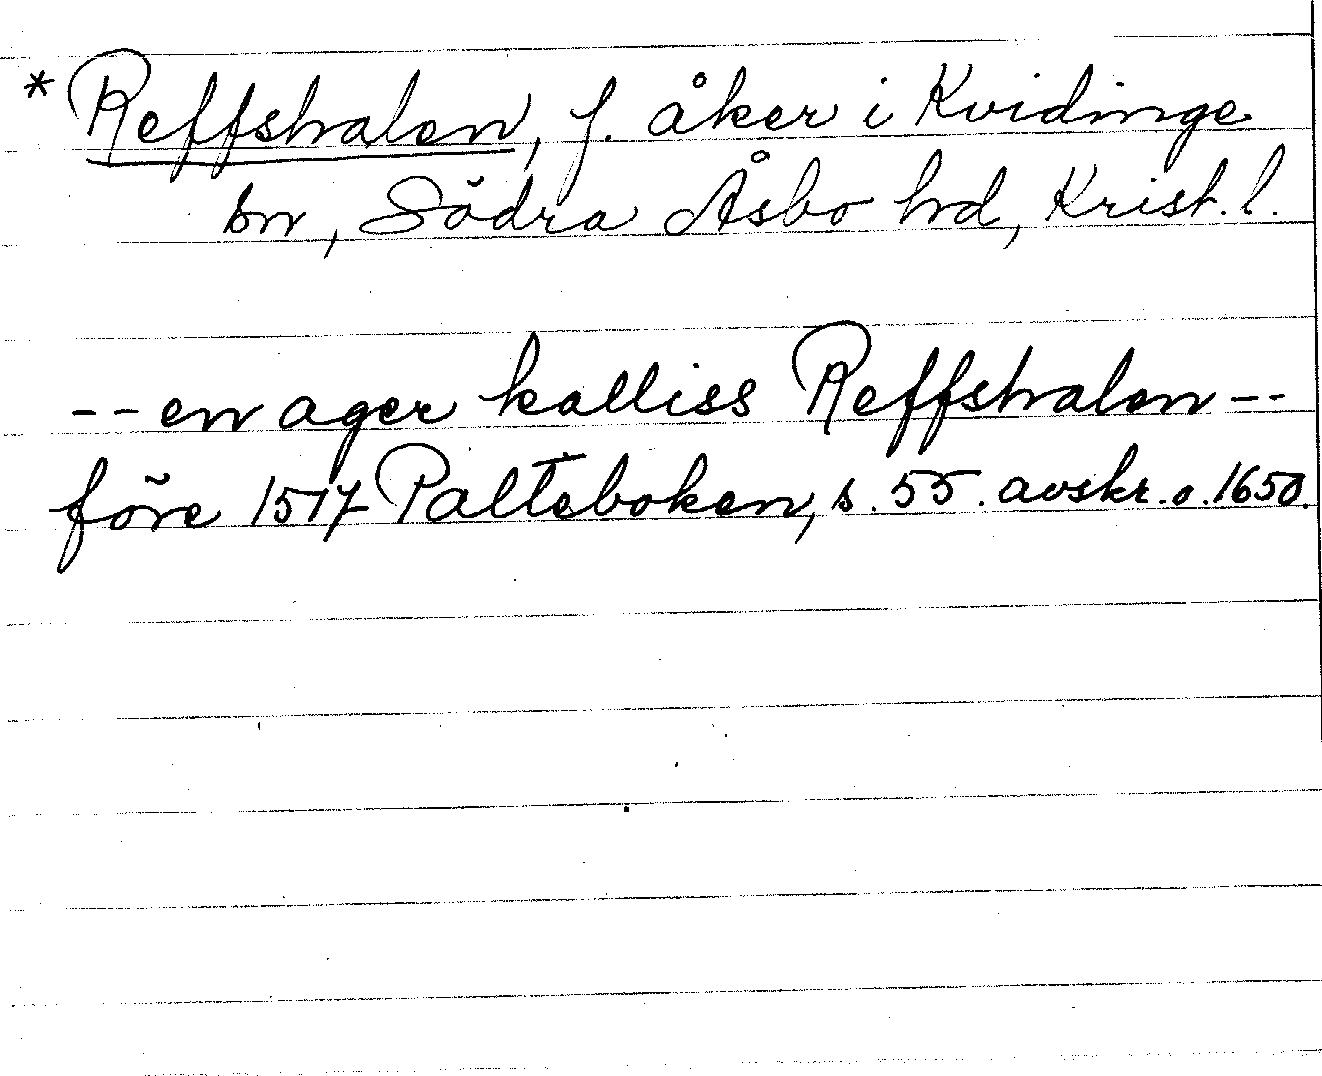 * Reffshalen, f. åker i Kvidinge
sn, Södra Åsbo hd, Krist. l.
-- en ager kalliss Reffshalen --
före 1517 Palteboken, s. 55. avskr. o. 1650.